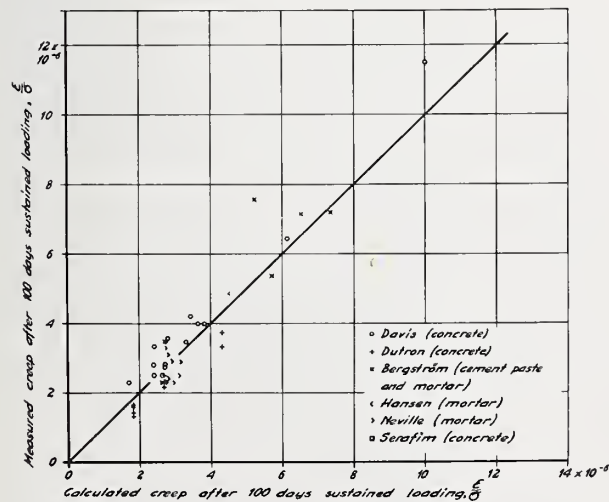 Measured creep after 100 days sustained loading, ε/σ
12 x
10⁻⁶
10
8
6
4
2
0
0 2 4 6 8 10 12 14 x 10⁻⁶
Calculated creep after 100 days sustained loading, ε/σ
o Davis (concrete)
+ Dutron (concrete)
× Bergström (cement paste
and mortar)
‹ Hansen (mortar)
› Neville (mortar)
□ Serafim (concrete)